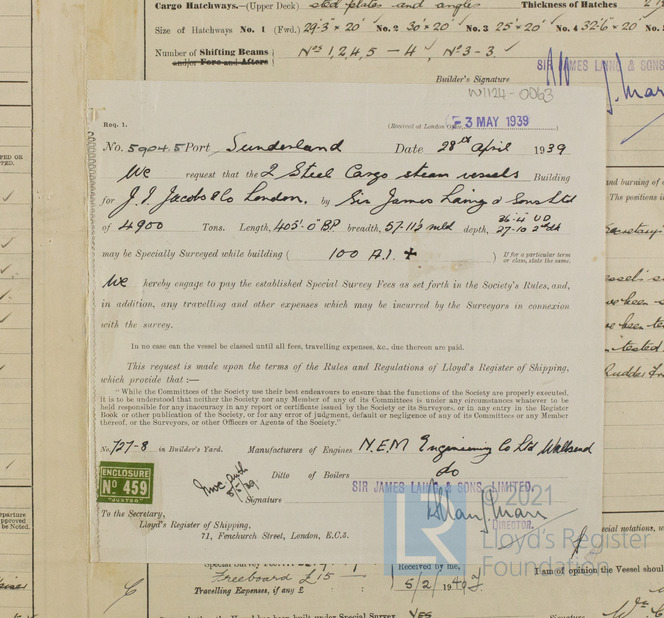 Cargo Hatchways.—(Upper Deck) steel plates and angles Thickness of Hatches
Size of Hatchways No. 1 (Fwd.) 29'-3" × 20' No. 2 30' × 20' No. 3 25' × 20' No. 4 32'-6" × 20' No. 5
Number of Shifting Beams and/or Fore and Afters Nos 1, 2, 4, 5 – 4 No 3 - 3
Builder's Signature
SIR JAMES LAING & SONS
W1124-0063
Req. 1.
(Received at London Office,
3 MAY 1939
No. 5904.5 Port Sunderland Date 28th April 1939
We request that the 2 Steel Cargo steam vessels Building
for J. I. Jacobs & Co London, by Sir James Laing & Sons Ltd
of 4900 Tons. Length, 405'-0" BP breadth, 57-11½ mld depth, 26-4" UD 27-10 2nd dk
may be Specially Surveyed while building ( 100 A.1. ) If for a particular term or class, state the same.
We hereby engage to pay the established Special Survey Fees as set forth in the Society's Rules, and,
in addition, any travelling and other expenses which may be incurred by the Surveyors in connexion
with the survey.
In no case can the vessel be classed until all fees, travelling expenses, &c., due thereon are paid.
This request is made upon the terms of the Rules and Regulations of Lloyd's Register of Shipping,
which provide that :—
"While the Committees of the Society use their best endeavours to ensure that the functions of the Society are properly executed,
it is to be understood that neither the Society nor any Member of any of its Committees is under any circumstances whatever to be
held responsible for any inaccuracy in any report or certificate issued by the Society or its Surveyors, or in any entry in the Register
Book or other publication of the Society, or for any error of judgment, default or negligence of any of its Committees or any Member
thereof, or the Surveyors, or other Officers or Agents of the Society."
No. 727-8 in Builder's Yard. Manufacturers of Engines N.E.M Engineering Co Ltd Wallsend
Ditto of Boilers do
ENCLOSURE
No 459
"JUSTSO"
5/5/39
SIR JAMES LAING & SONS, LIMITED.
Signature
DIRECTOR.
To the Secretary,
Lloyd's Register of Shipping,
71, Fenchurch Street, London, E.C.3.
© 2021
LR
Lloyd's Register
Foundation
Freeboard £15
Travelling Expenses, if any £
Received by me,
5/2/1940
I am of opinion the Vessel should
YES